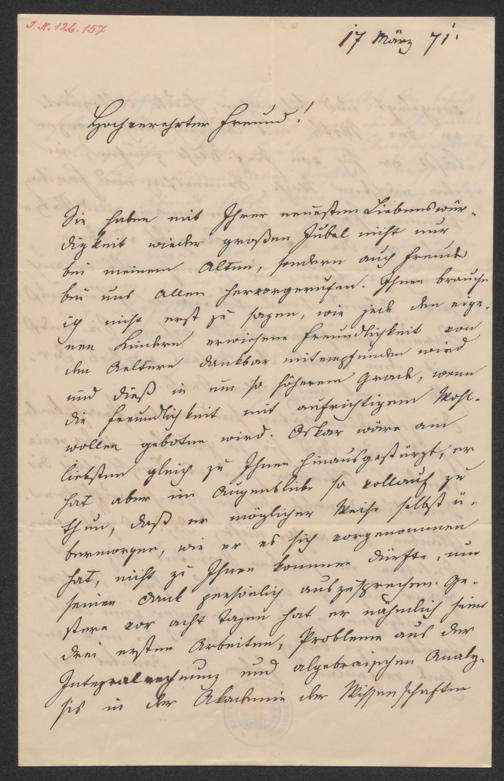 J.N. 126.157
17 März 71.
Hochverehrter Freund!
Sie haben mit Ihrer neuesten Liebenswür-
digkeit wieder großen Jubel nicht nur
bei meinem Alten, sondern auch Freude
bei uns Allen hervorgerufen. Ihnen brauche
ich nicht erst zu sagen, wie jede den eige-
nen Kindern erwiesene Freundlichkeit von
den Aeltern dankbar mitempfunden wird
und dieß in um so höherem Grade, wenn
die Freundlichkeit mit aufrichtigem Wohl-
wollen geboten wird. Oskar wäre am
liebsten gleich zu Ihnen hinausgestürzt, er
hat aber im Augenblicke so vollauf zu
thun, daß er möglicher Weise selbst ü-
bermorgen, wie er es sich vorgenommen
hat, nicht zu Ihnen kommen dürfte, um
seinen Dank persönlich auszusprechen. Ge-
stern vor acht Tagen hat er nähmlich seine
drei ersten Arbeiten, Probleme aus der
Integralrechnung und algebraischen Analy-
sis in der Akademie der Wissenschaften